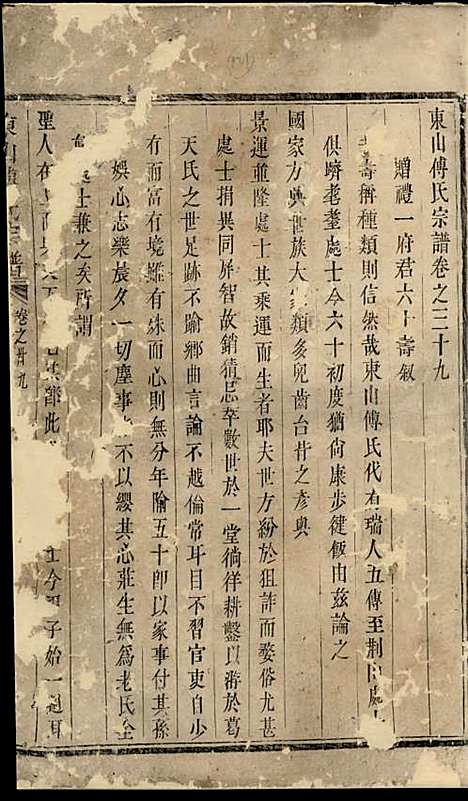 東山傅氏宗譜卷之三十九
贈禮一府君六十壽叙
壽稱種類則信然哉東山傅氏代有瑞人五傳至荆山處士
俱躋耄耋處士今六十初度猶尚康步健飯由茲論之
國家方興世族大家類多兒齒台背之彥與
景運並隆處士其乘運而生者耶夫世方紛於狙詐而婺俗尤甚
處士捐異同屏智故銷猜忌萃數世於一堂徜徉耕鑿以游於葛
天氏之世足跡不踰鄉曲言論不越倫常耳目不習官吏自少
有而富有境雖有殊而心則無分年隃五十即以家事付其孫
娛心志樂晨夕一切塵事不以纓其心莊生無為老氏全
處士兼之矣所謂
聖人在 此 士今 子始一週耳
東山傅氏宗譜 卷之卅九